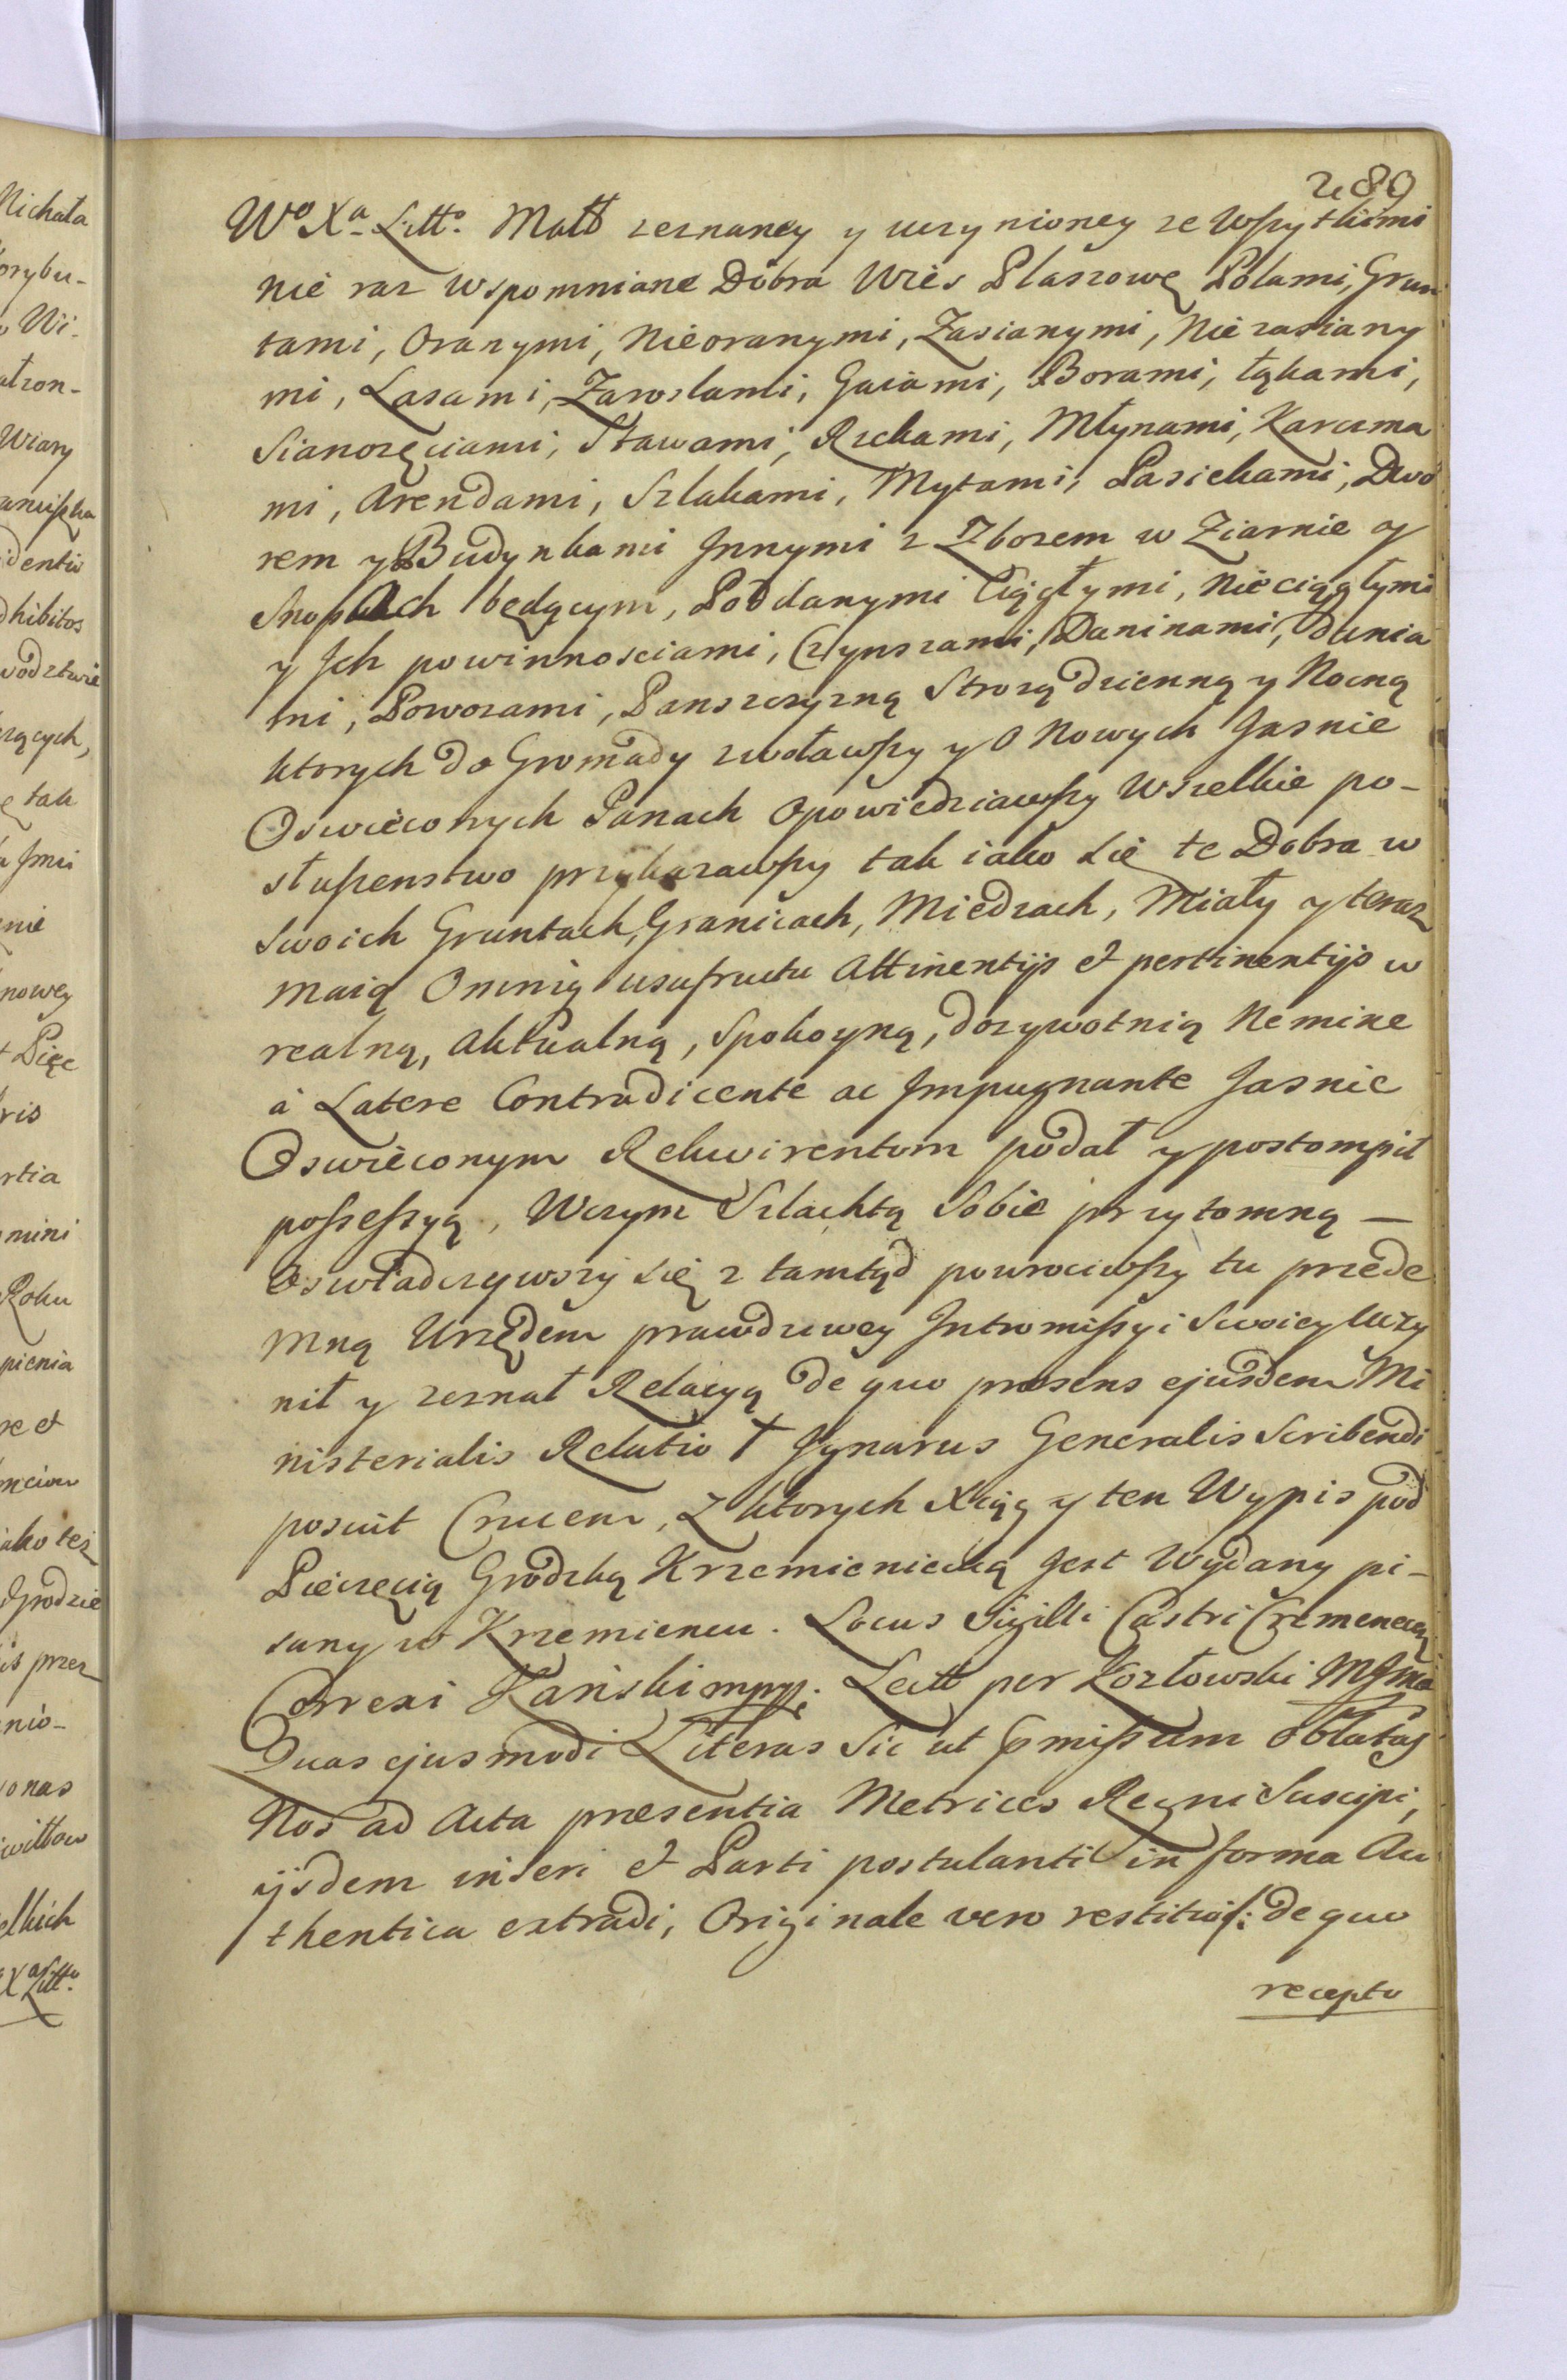 289
Wo Xa Litto. Matt zeznaney y uczynioney ze Wszytkiemi
nie raz wspomniane Dobra Wies Plaszowę Polami, Grun
tami, Oranymi, Nieoranymi, Zasianymi, Niezasiany
mi, Lasami, Zaroslami, Gaiami, Borami, łąkami,
Sianozęciami, Stawami, Rzekami, Młynami, Karczma
mi, Arendami, Szlakami, Mytami, Pasiekami, Dwo
rem y Budynkami Innymi z Zbozem w Ziarnie y
Snopkach będącym, Poddanymi Ciągłymi, Nieciągłymi
y Ich powinnosciami, Czynszami, Daninami, Dunia
mi, Powozami, Panszczyzną Strozą dzienną y Nocną
ktorych do Gromady zwoławszy y O Nowych Jasnie
Oswieconych Panach Opowiedziawszy Wszelkie po-
słuszenstwo przykazawszy tak iako się te Dobra w
swoich Gruntach, Granicach, Miedzach, Miały y teraz
maią Omnig usufructu Attinentijs et pertinentijs w
realną, Aktualną, Spokoyną, dozywotnią Nemine
à Latere Contradicente ac Impugnante Jasnie
Oswieconym Rekwirentom podał y postompił
possessyą, Wczym Szlachtą Sobie przytomną —
Oswiadczywszy się z tamtąd powrociwszy tu przede
mną Urzędem prawdziwey Intromissyi Swoiey uczy
nił y zeznał Relacyą de quo præsens ejusdem Mi
nisterialis Relatio † Ignarus Generalis Scribendi
posuit Crucem, Z ktorych Xiąg y ten Wypis pod
Pieczęcią Grodzką Krzemieniecką Jest Wydany pi-
sany w Krzemiencu. Locus Sigilli Castri Cremenecen
Correxi Kański mpp. Lectt per Kozłowski
Duas ejusmodi Literas Sic ut pmissum Oblatas
Nos ad Acta præsentia Metrices Regni Suscipi,
ijsdem inseri et Parti postulanti in forma Au
thentica extradi, Originale vero restitui /: de quo
recepto